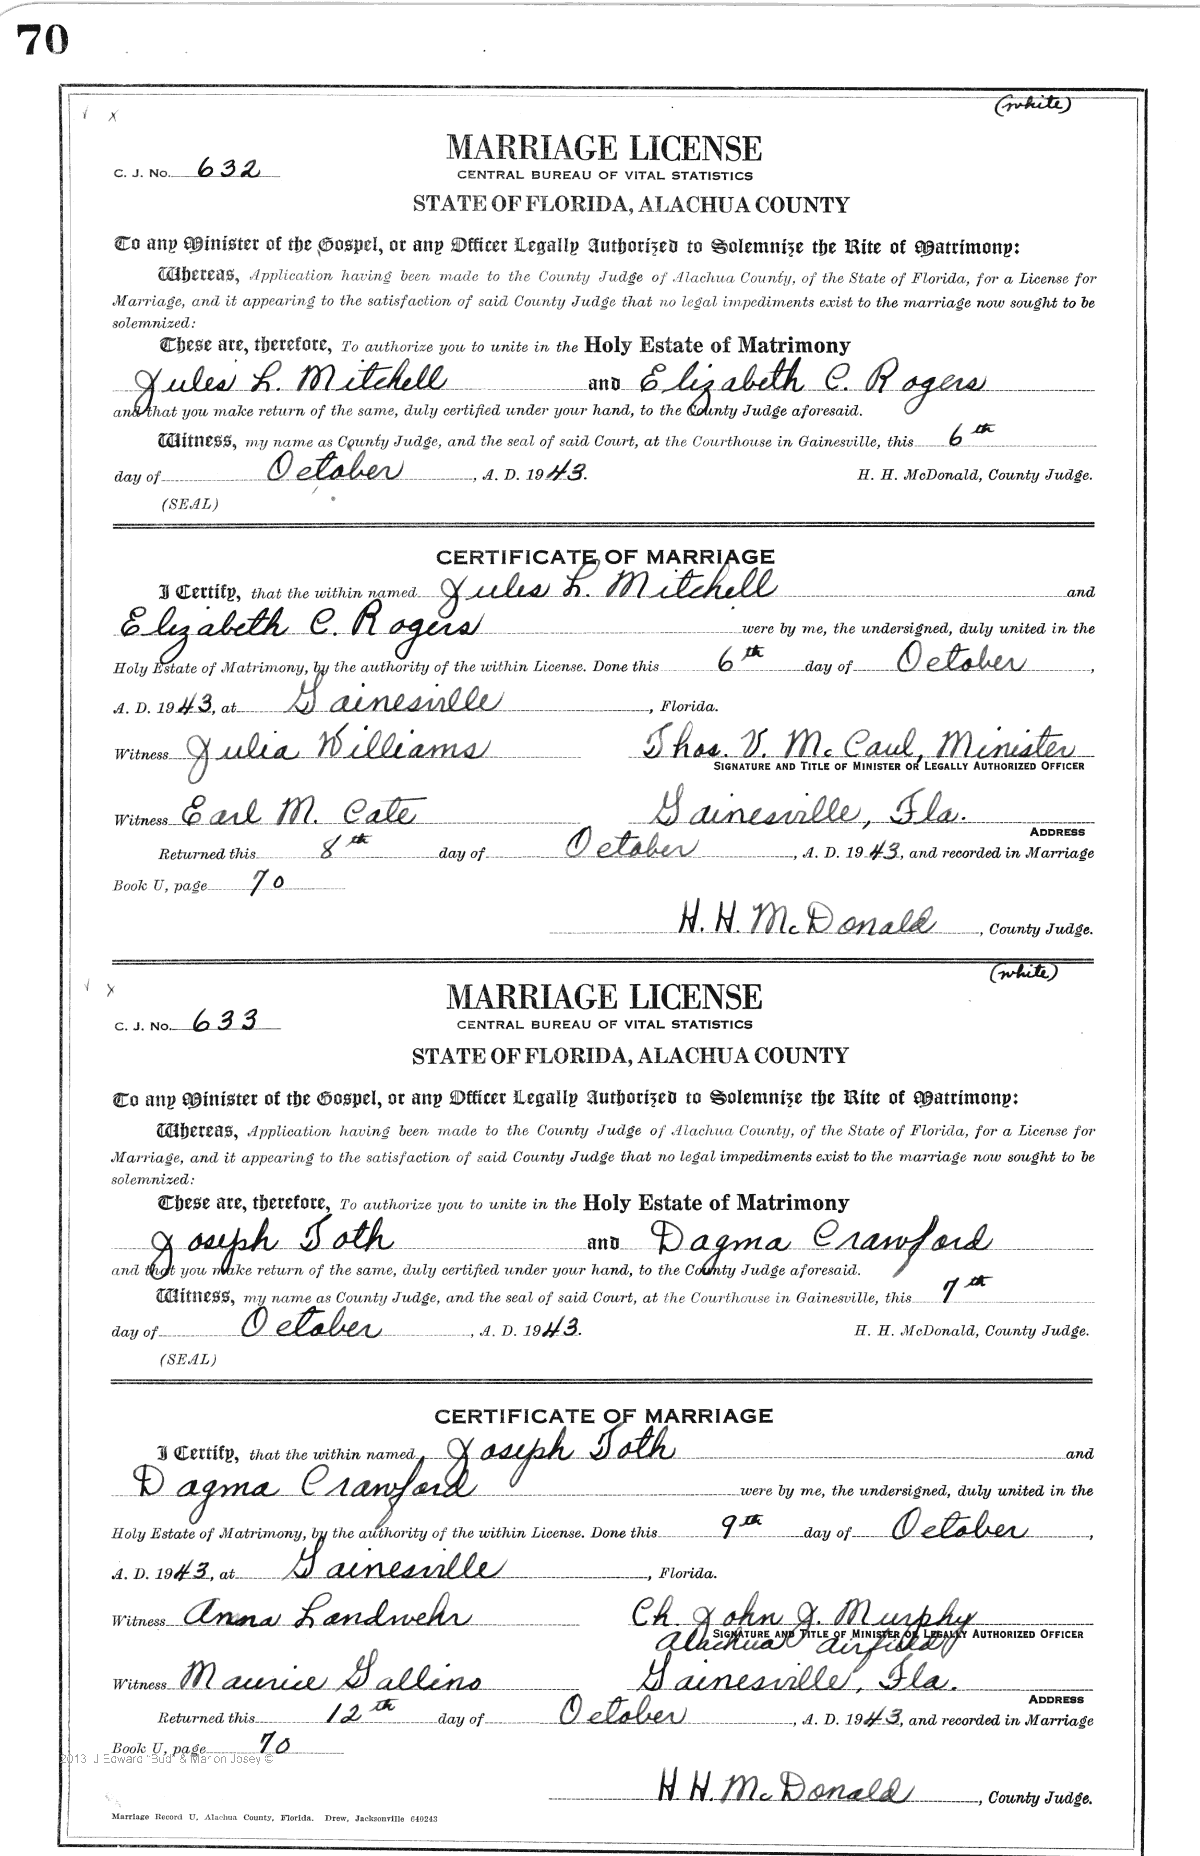 70
(white)
MARRIAGE LICENSE
C. J. No. 632
CENTRAL BUREAU OF VITAL STATISTICS
STATE OF FLORIDA, ALACHUA COUNTY
To any Minister of the Gospel, or any Officer Legally Authorized to Solemnize the Rite of Matrimony:
Whereas, Application having been made to the County Judge of Alachua County, of the State of Florida, for a License for
Marriage, and it appearing to the satisfaction of said County Judge that no legal impediments exist to the marriage now sought to be
solemnized:
These are, therefore, To authorize you to unite in the Holy Estate of Matrimony
Jules L. Mitchell and Elizabeth C. Rogers
and that you make return of the same, duly certified under your hand, to the County Judge aforesaid.
Witness, my name as County Judge, and the seal of said Court, at the Courthouse in Gainesville, this 6th
day of October, A. D. 1943. H. H. McDonald, County Judge.
(SEAL)
CERTIFICATE OF MARRIAGE
I Certify, that the within named Jules L. Mitchell and
Elizabeth C. Rogers were by me, the undersigned, duly united in the
Holy Estate of Matrimony, by the authority of the within License. Done this 6th day of October,
A. D. 1943, at Gainesville, Florida.
Witness Julia Williams Thos. V. McCaul, Minister
SIGNATURE AND TITLE OF MINISTER OR LEGALLY AUTHORIZED OFFICER
Witness Earl M. Cate Gainesville, Fla.
ADDRESS
Returned this 8th day of October, A. D. 1943, and recorded in Marriage
Book U, page 70
H. H. McDonald, County Judge.
(white)
MARRIAGE LICENSE
C. J. No. 633
CENTRAL BUREAU OF VITAL STATISTICS
STATE OF FLORIDA, ALACHUA COUNTY
To any Minister of the Gospel, or any Officer Legally Authorized to Solemnize the Rite of Matrimony:
Whereas, Application having been made to the County Judge of Alachua County, of the State of Florida, for a License for
Marriage, and it appearing to the satisfaction of said County Judge that no legal impediments exist to the marriage now sought to be
solemnized:
These are, therefore, To authorize you to unite in the Holy Estate of Matrimony
Joseph Toth and Dagma Crawford
and that you make return of the same, duly certified under your hand, to the County Judge aforesaid.
Witness, my name as County Judge, and the seal of said Court, at the Courthouse in Gainesville, this 7th
day of October, A. D. 1943. H. H. McDonald, County Judge.
(SEAL)
CERTIFICATE OF MARRIAGE
I Certify, that the within named Joseph Toth and
Dagma Crawford were by me, the undersigned, duly united in the
Holy Estate of Matrimony, by the authority of the within License. Done this 9th day of October,
A. D. 1943, at Gainesville, Florida.
Witness Anna Landwehr Ch. John J. Murphy
SIGNATURE AND TITLE OF MINISTER OR LEGALLY AUTHORIZED OFFICER
Alachua airfield
Witness Maurice Gallino Gainesville, Fla.
ADDRESS
Returned this 12th day of October, A. D. 1943, and recorded in Marriage
Book U, page 70
2013 J Edward "Bud" & Marion Josey ©
H. H. McDonald, County Judge.
Marriage Record U, Alachua County, Florida. Drew, Jacksonville 640243